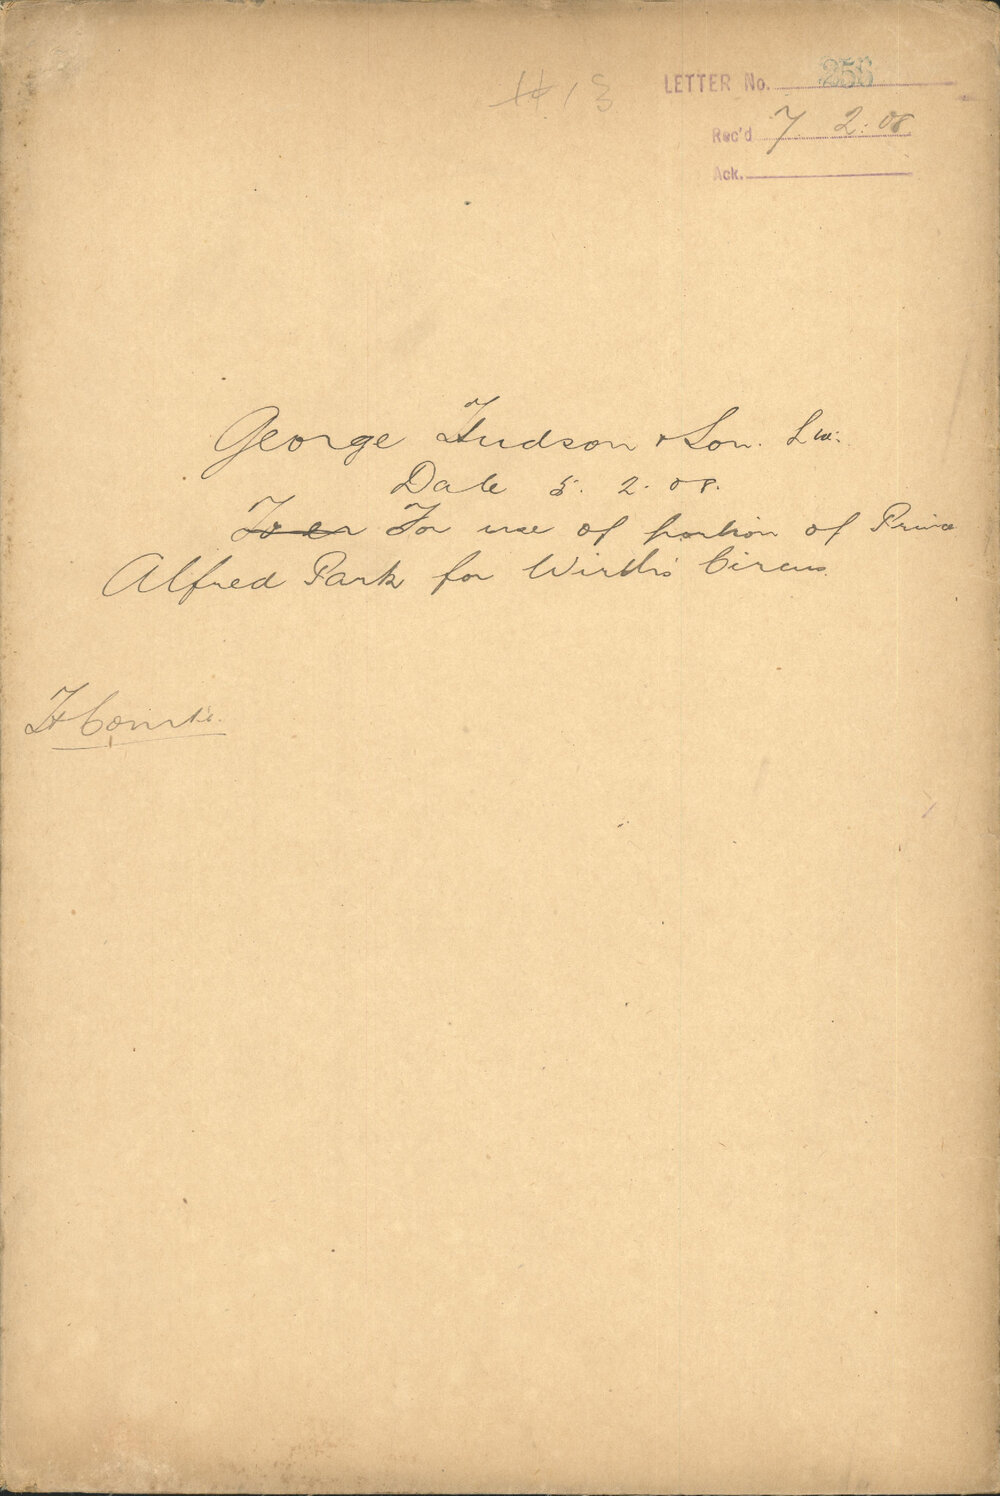 LETTER No. 256
Rec'd 7. 2. 08
Ack.
George Hudson & Son. Ld.
Date 5. 2. 08.
For use of portion of Prince
Alfred Park for Wirth's Circus